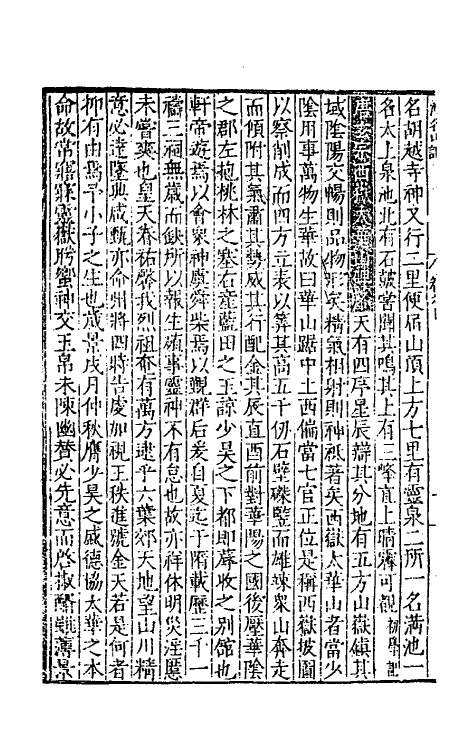 名胡越寺神又行二里便屆山頂上方七里有靈泉二所一名蒲池一
名太上泉池北有石鼓嘗聞其鳴其上有三峰直上晴霽可覩
唐玄宗西嶽太華山碑 天有四序星辰辯其分地有五方山嶽鎮其
域陰陽交暢則品物形矣精氣相射則神祇著矣西嶽太華山者當少
陰用事萬物生華故曰華山踞中土西偏當七宮正位是稱西嶽披圖
以察削成而四方立表以筭其高五千仞石壁磔豎而雄竦衆山奔走
而傾附其氣肅其勢威其行配金其辰直酉前對華陽之國後壓華陰
之郡左抱桃林之塞右産藍田之玉諒少昊之下都即蓐收之别館也
軒帝遊焉以會衆神虞舜柴焉以覲群后爰自夏迄于隋載歷三千一
禱三祠無歲而缺所以報生殖事靈神不有怠也故亦祥休明災淫慝
未嘗爽也皇天眷祐馨我烈祖奄有萬方逮乎六葉郊天地望山川精
意必達墜典咸甄亦命州將四時告虔加視王秩進號金天若是何者
抑有由焉予小子之生也歲景戌月仲秋膺少昊之盛德協太華之本
命故常寤寐靈嶽肸蠁神交玉帛未陳幽贊必先意而啓椒醑雖薄景